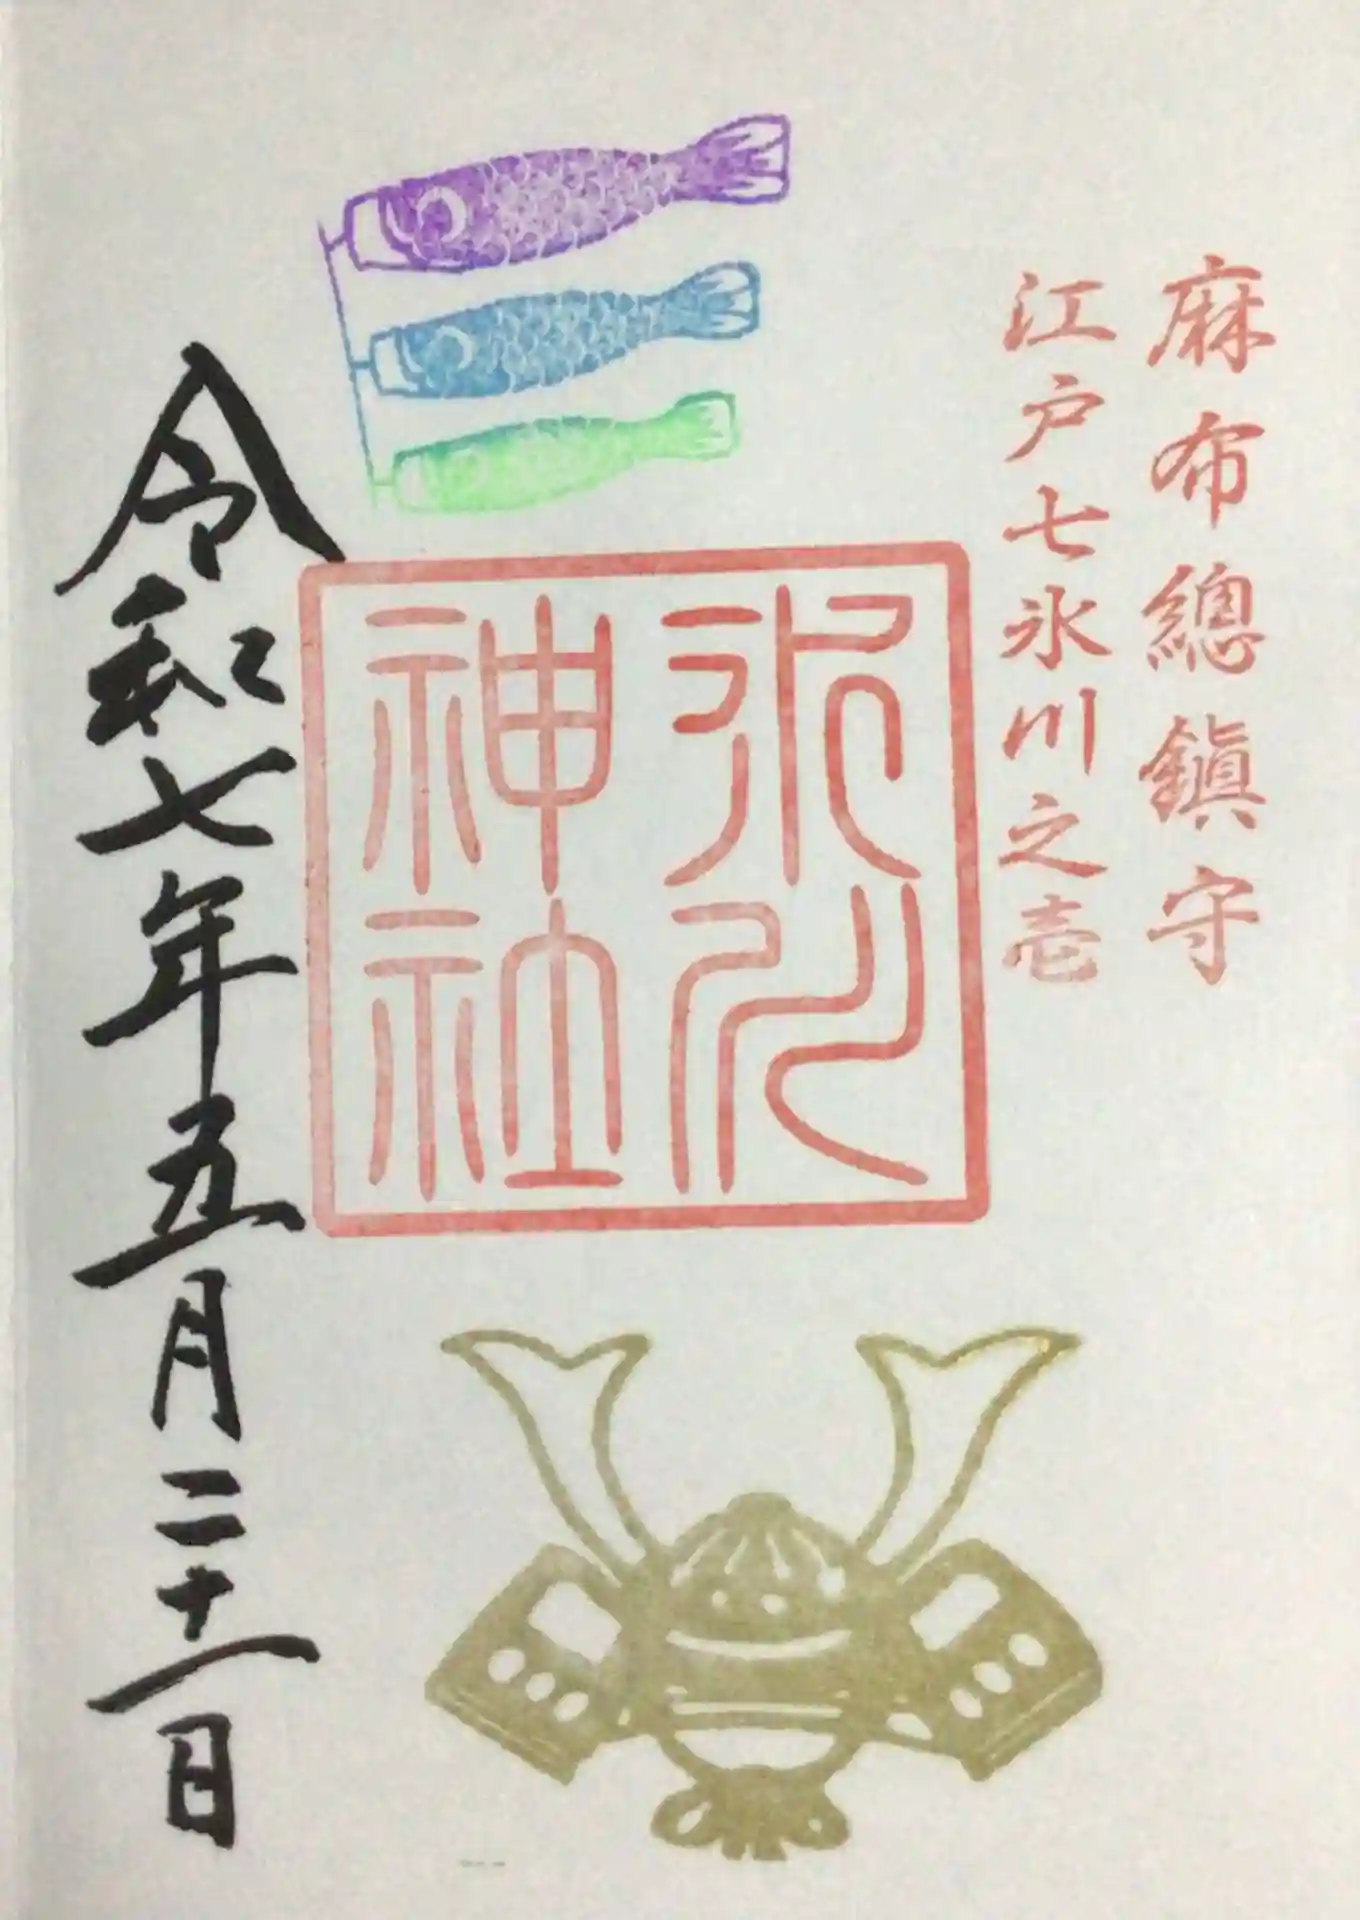 麻布總鎭守
江戸七氷川之壱
氷川
神社
令和七年五月二十一日